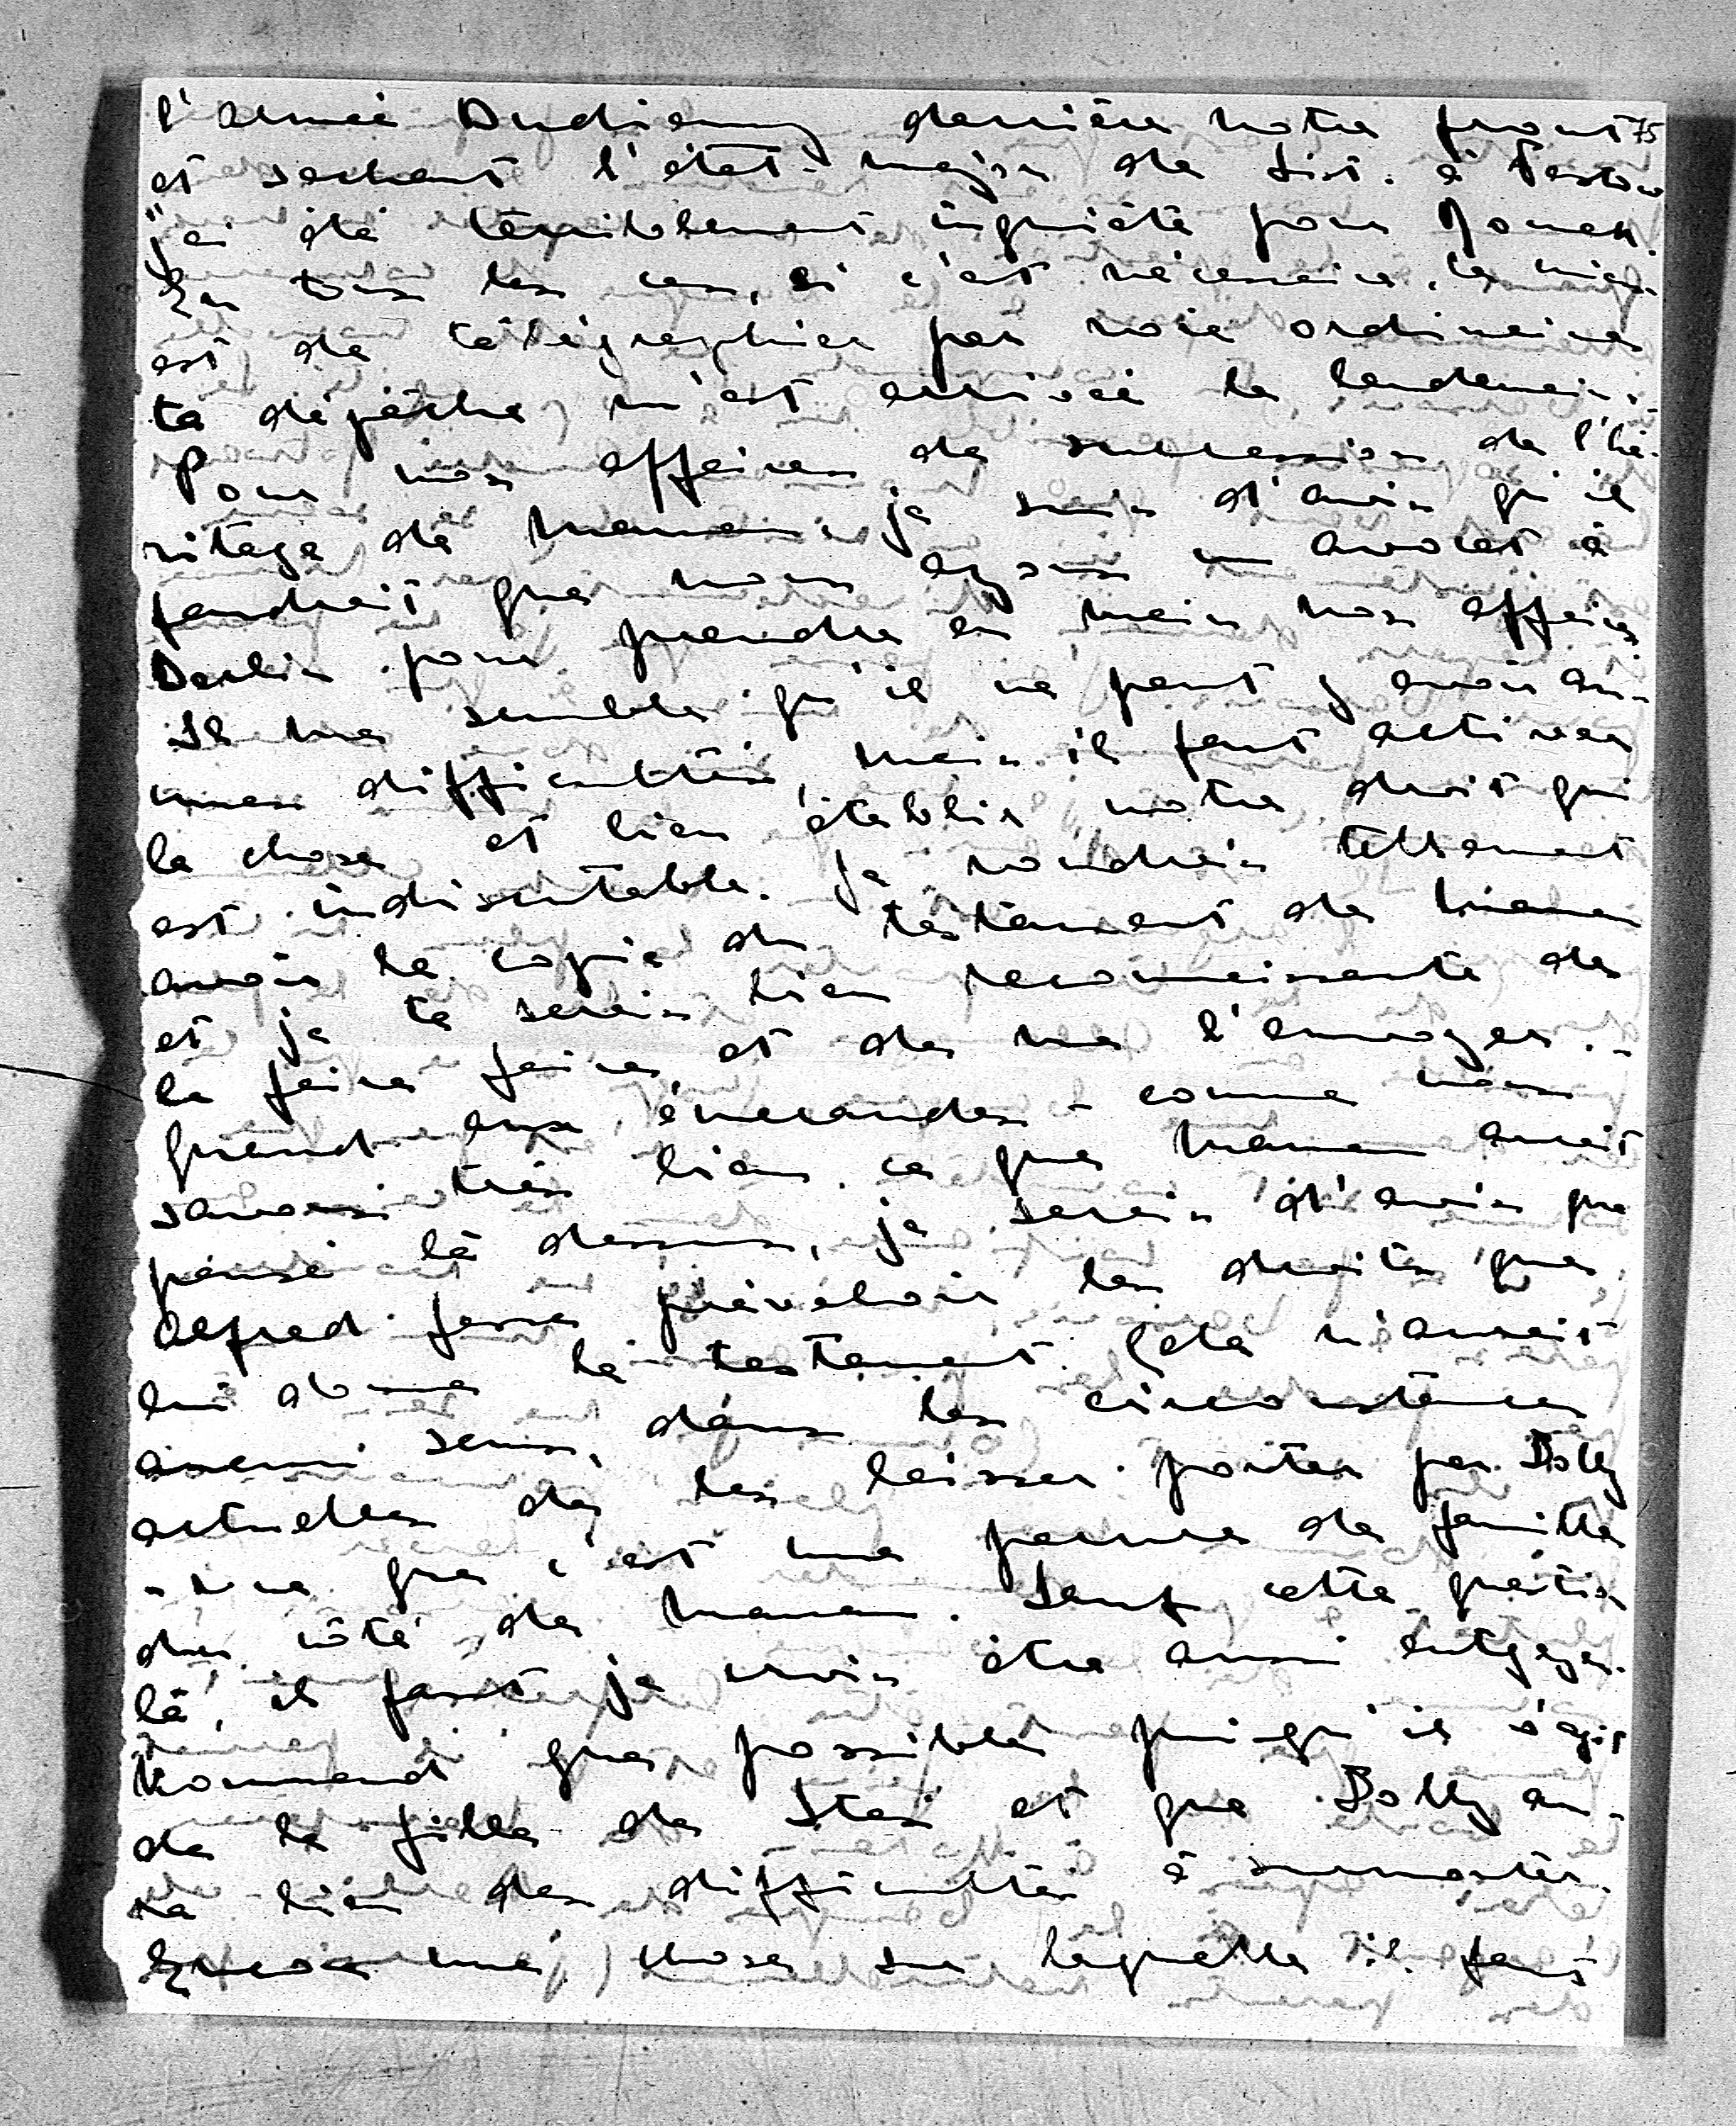 l'armée Budienny derrière notre front 75
et sachant l'état-major de List. à
j'ai été terriblement inquiète pour Romek.
En tous les cas, si c'est nécessaire, le mieux
est de télégraphier par voie ordinaire
ta dépêche m'est arrivée le lendemain.
Pour nos affaires de succession de l'hé-
ritage de maman je suis d'avis qu'il
faudrait que nous ayons un avocat à
Berlin pour prendre en main nos affaires.
Il me semble qu'il ne peut y avoir au-
cunes difficultés, mais il faut activer
la chose et bien établir notre droit qui
est indiscutable. Je voudrais tellement
avoir la copie du testament de maman
et je te serais bien reconnaissante de
la faire faire et de me l'envoyer. -
Quand aux émeraudes - comme nous
savons très bien ce que maman avait
pensé là dessus, je serais d'avis que
Alfred fasse prévaloir les droits que
lui donne le testament. Cela n'aurait
aucun sens, dans les circonstances
actuelles de les laisser porter par Dolly
- vu que c'est une parure de famille
du côté de maman. Sauf cette question
là, il faut je crois être aussi entgegen-
kommend que possible puisqu'il s'agit
de la fille de Stasi et que Dolly au-
ra bien des difficultés à surmonter.
Encore une chose sur laquelle il faut